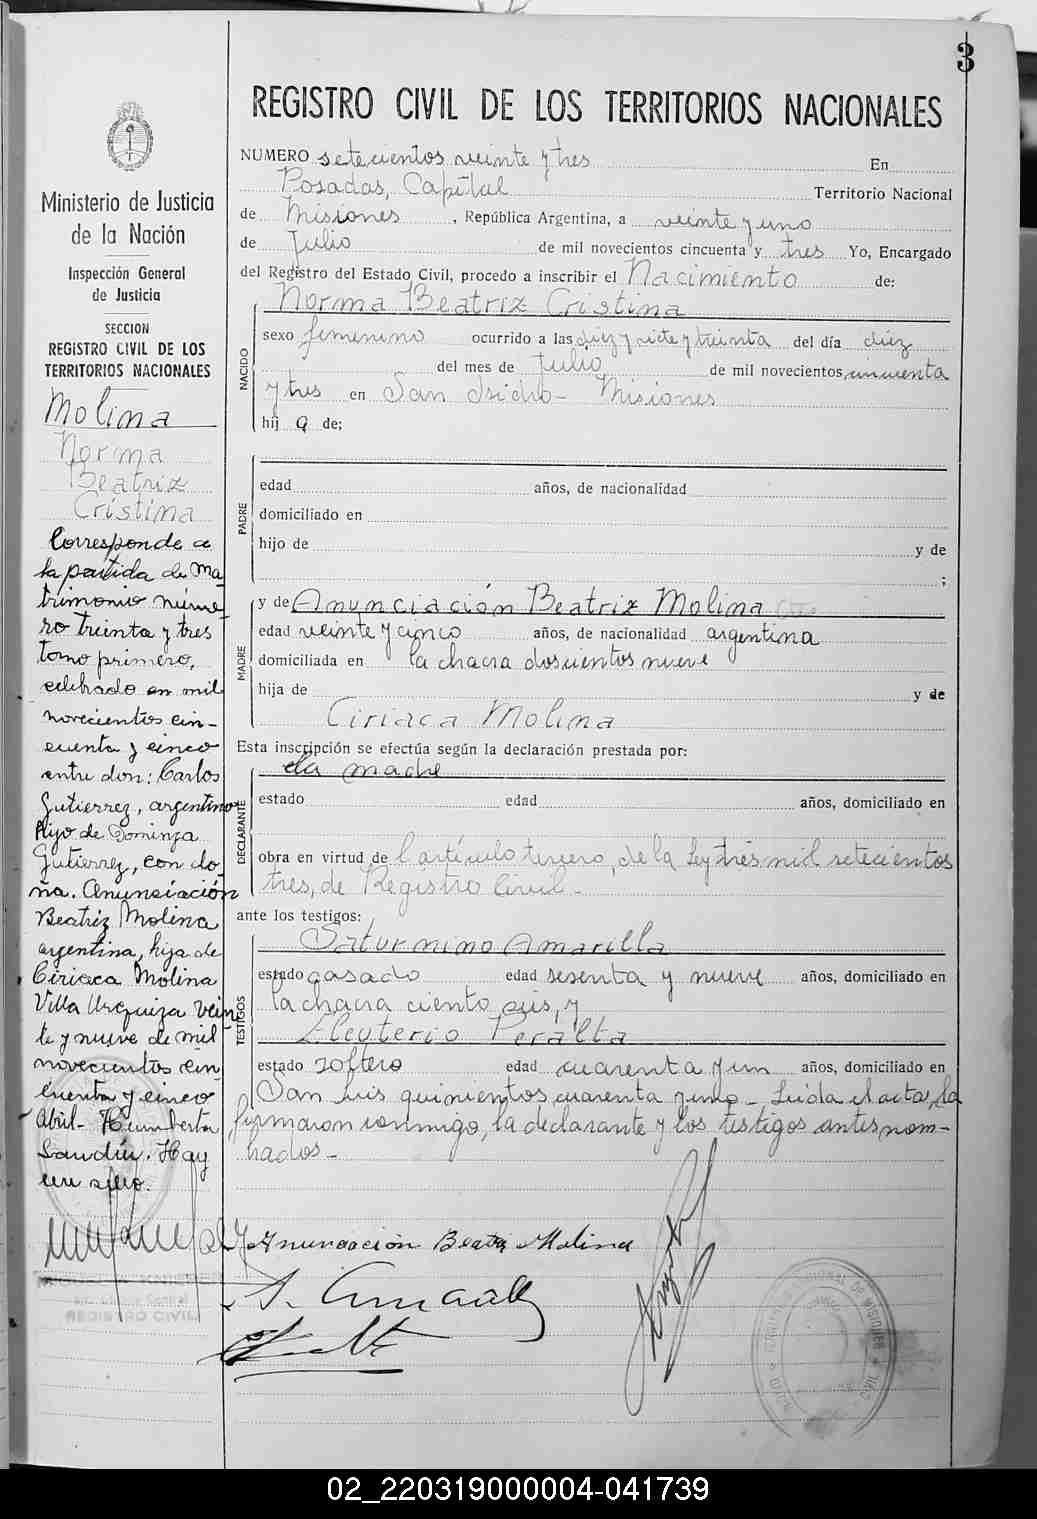 3
REGISTRO CIVIL DE LOS TERRITORIOS NACIONALES
NUMERO setecientos veinte y tres En
Posadas, Capital Territorio Nacional
de Misiones, República Argentina, a veinte y uno
de Julio de mil novecientos cincuenta y tres Yo, Encargado
del Registro del Estado Civil, procedo a inscribir el Nacimiento de:
NACIDO
Norma Beatriz Cristina
sexo femenino ocurrido a las diez y siete y treinta del día diez
del mes de Julio de mil novecientos cincuenta
y tres en San Isidro - Misiones
hij a de:
PADRE
edad años, de nacionalidad
domiciliado en
hijo de y de
;
MADRE
y de Anunciación Beatriz Molina
edad veinte y cinco años, de nacionalidad argentina
domiciliada en la chacra doscientos nueve
hija de y de
Ciriaca Molina
Esta inscripción se efectúa según la declaración prestada por:
DECLARANTE
la madre
estado edad años, domiciliado en
obra en virtud de l artículo tercero, de la Ley tres mil setecientos
tres, de Registro Civil -
ante los testigos:
TESTIGOS
Saturnino Amarilla
estado casado edad sesenta y nueve años, domiciliado en
la chacra ciento seis, y
Eleuterio Peralta
estado soltero edad cuarenta y un años, domiciliado en
San Luis quinientos cuarenta y uno - Leída el acta, la
firmaron conmigo, la declarante y los testigos antes nom-
brados -
Anunciación Beatriz Molina
Ministerio de Justicia
de la Nación
Inspección General
de Justicia
SECCION
REGISTRO CIVIL DE LOS
TERRITORIOS NACIONALES
Molina
Norma
Beatriz
Cristina
Corresponde a
la partida de ma
trimonio núme
ro treinta y tres
tomo primero,
celebrado en mil
novecientos cin-
cuenta y cinco
entre don: Carlos
Gutierrez, argentino
hijo de Dominga
Gutierrez, con do
ña. Anunciación
Beatriz Molina
argentina, hija de
Ciriaca Molina
Villa Urquiza vein
te y nueve de mil
novecientos cin
cuenta y cinco
Abril - Humberto
Landín. Hay
un sello.
REGISTRO CIVIL
02_220319000004-041739